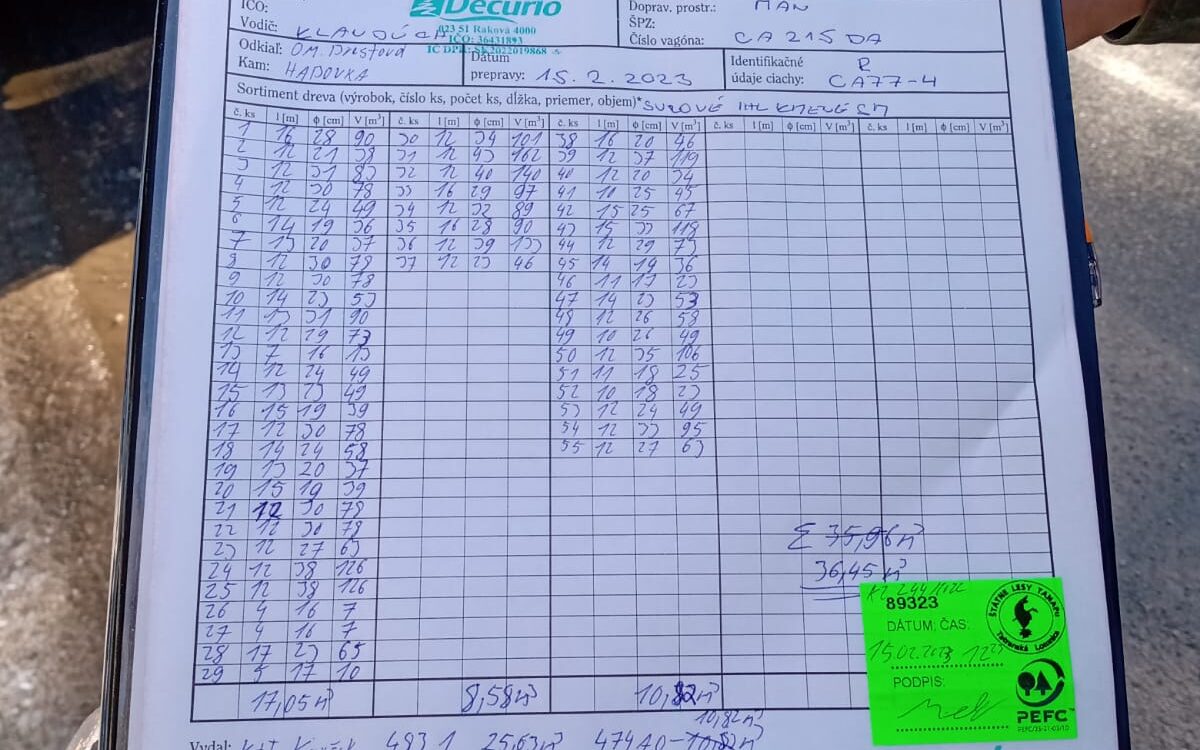 IČO:
Decurio
023 51 Raková 4000
IČO: 36431893
IČ DPH: SK2022019868
Vodič:
Doprav. prostr.: MAN
ŠPZ:
Číslo vagóna: CA 215 DA
Odkiaľ: O.M.
Kam: HADOVKA
Dátum
prepravy: 15.2.2023
Identifikačné R
údaje ciachy: CA77-4
Sortiment dreva (výrobok, číslo ks, počet ks, dĺžka, priemer, objem)* SUROVÉ IHL KMENE
č. ks l [m] ϕ [cm] V [m³] č. ks l [m] ϕ [cm] V [m³] č. ks l [m] ϕ [cm] V [m³] č. ks l [m] ϕ [cm] V [m³] č. ks l [m] ϕ [cm] V [m³]
1 16 28 90 30 12 34 101 38 16 20 46
2 12 21 38 31 12 43 162 39 12 37 119
3 12 31 83 32 12 40 140 40 12 20 34
4 12 30 78 33 16 29 97 41 10 25 45
5 12 24 49 34 12 32 89 42 15 25 67
6 14 19 36 35 16 28 90 43 15 33 118
7 13 20 37 36 12 39 133 44 12 29 73
8 12 30 78 37 12 23 46 45 14 19 36
9 12 30 78 46 11 17 23
10 14 23 53 47 14 23 53
11 13 31 90 48 12 26 58
12 12 29 73 49 10 26 49
13 7 16 13 50 12 35 106
14 12 24 49 51 11 18 25
15 13 23 49 52 10 18 23
16 15 19 39 53 12 24 49
17 12 30 78 54 12 33 95
18 14 24 58 55 12 27 63
19 13 20 37
20 15 19 39
21 12 30 78
22 12 30 78
23 12 27 63
24 12 38 126
25 12 38 126
26 4 16 7
27 4 16 7
28 17 23 65
29 5 17 10
Σ 35,96 m³
36,45 m³
17,05 m³ 8,58 m³ 10,82 m³
10,82 m³
Vydal: 4831 25,63 m³ 474A0-10,82 m³
89323
DÁTUM; ČAS:
15.02.2023 12
PODPIS:
ŠTÁTNE LESY TANAPu
Tatranská Lomnica
PEFC™